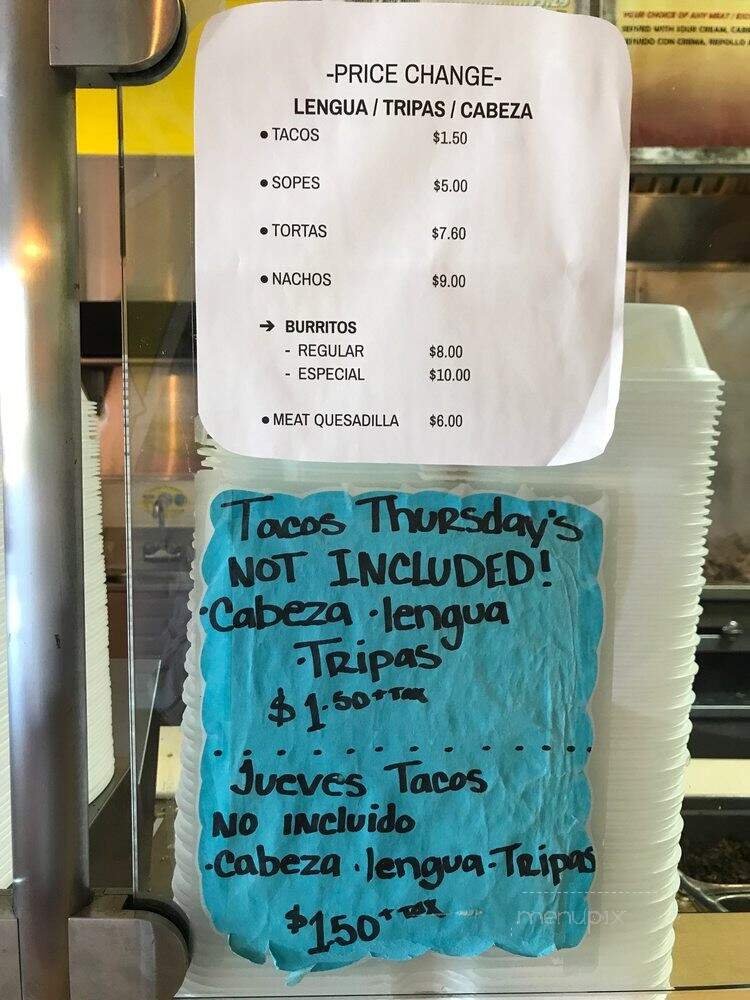 YOUR CHOICE OF ANY MEAT
SERVED WITH SOUR CREAM,
-PRICE CHANGE-
LENGUA / TRIPAS / CABEZA
● TACOS $1.50
● SOPES $5.00
● TORTAS $7.60
● NACHOS $9.00
➔ BURRITOS
- REGULAR $8.00
- ESPECIAL $10.00
● MEAT QUESADILLA $6.00
Tacos Thursday's
NOT INCLUDED!
·Cabeza ·lengua
·Tripas
$1.50+Tax
Jueves Tacos
NO INCluido
·Cabeza ·lengua-Tripas
$150+Tax
menupix